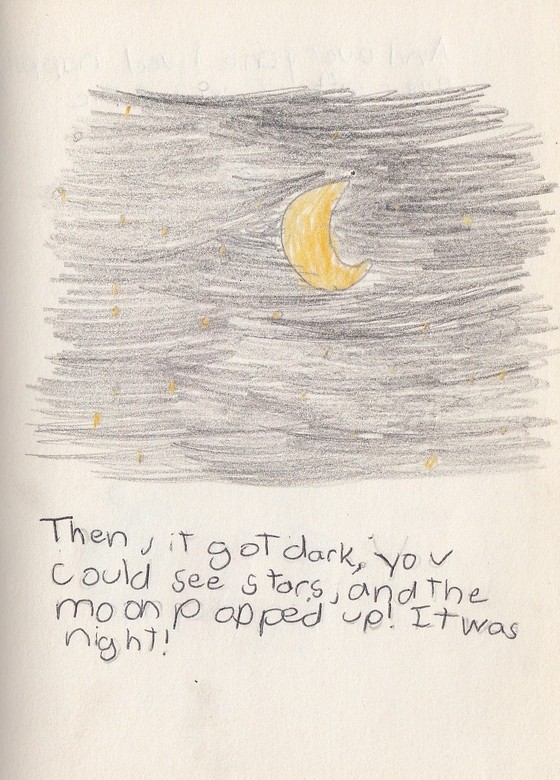 Then, it got dark, you
could see stars, and the
moon popped up! It was
night!